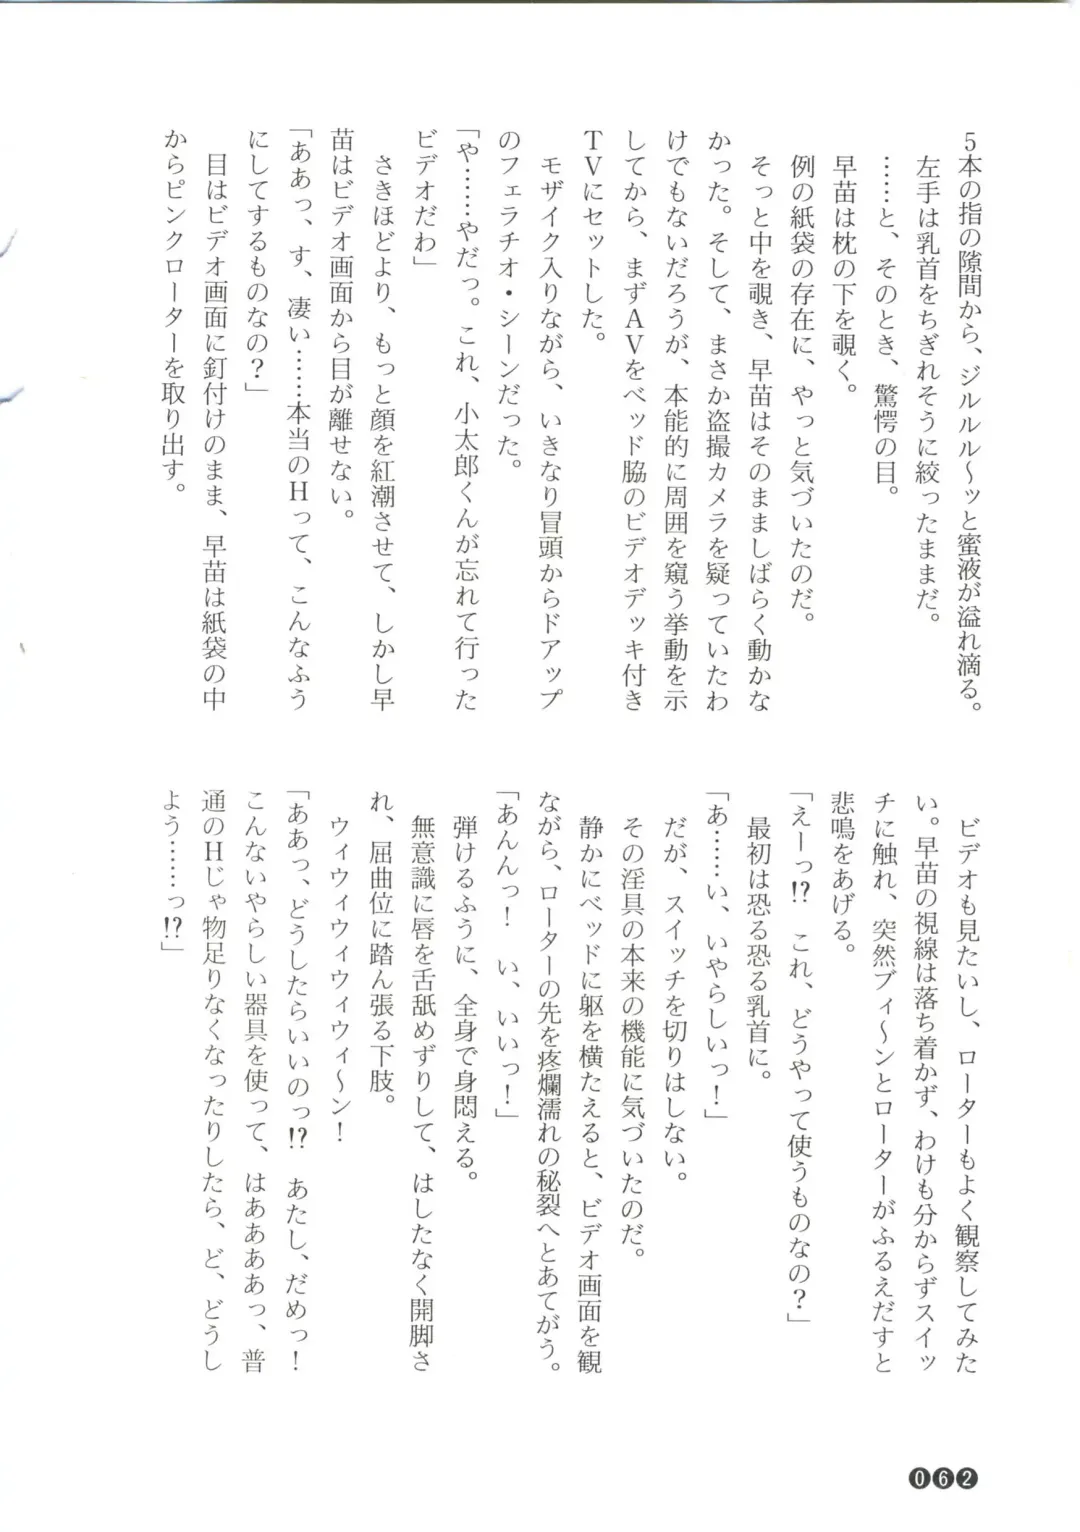 5本の指の隙間から、ジルルル～ッと蜜液が溢れ滴る。
左手は乳首をちぎれそうに絞ったままだ。
……と、そのとき、驚愕の目。
早苗は枕の下を覗く。
例の紙袋の存在に、やっと気づいたのだ。
そっと中を覗き、早苗はそのまましばらく動かな
かった。そして、まさか盗撮カメラを疑っていたわ
けでもないだろうが、本能的に周囲を窺う挙動を示
してから、まずAVをベッド脇のビデオデッキ付き
TVにセットした。
モザイク入りながら、いきなり冒頭からドアップ
のフェラチオ・シーンだった。
「や……やだっ。これ、小太郎くんが忘れて行った
ビデオだわ」
さきほどより、もっと顔を紅潮させて、しかし早
苗はビデオ画面から目が離せない。
「ああっ、す、凄い……本当のHって、こんなふう
にしてするものなの?」
目はビデオ画面に釘付けのまま、早苗は紙袋の中
からピンクローターを取り出す。
ビデオも見たいし、ローターもよく観察してみた
い。早苗の視線は落ち着かず、わけも分からずスイッ
チに触れ、突然ブィ～ンとローターがふるえだすと
悲鳴をあげる。
「えーっ!? これ、どうやって使うものなの?」
最初は恐る恐る乳首に。
「あ……い、いやらしいっ!」
だが、スイッチを切りはしない。
その淫具の本来の機能に気づいたのだ。
静かにベッドに躯を横たえると、ビデオ画面を観
ながら、ローターの先を疼爛濡れの秘裂へとあてがう。
「あんんっ! い、いいっ!」
弾けるふうに、全身で身悶える。
無意識に唇を舌舐めずりして、はしたなく開脚さ
れ、屈曲位に踏ん張る下肢。
ウィウィウィウィウィ～ン!
「ああっ、どうしたらいいのっ!? あたし、だめっ!
こんないやらしい器具を使って、はああああっ、普
通のHじゃ物足りなくなったりしたら、ど、どうし
よう……っ!?」
062